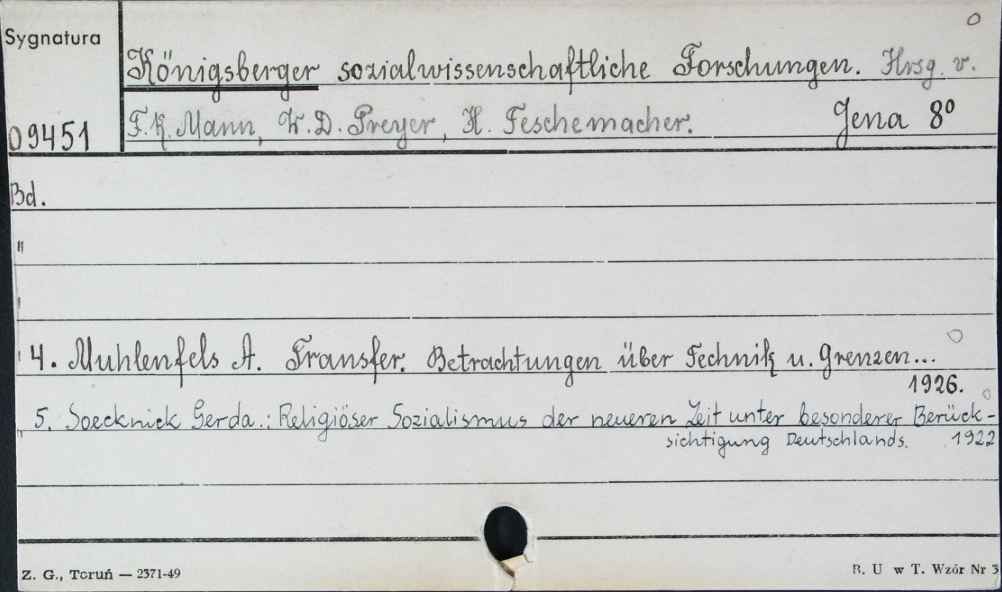 Sygnatura
Königsberger sozialwissenschaftliche Forschungen. Hrsg. v.
09451 F.K. Mann, W. D. Preyer, H. Teschemacher. Jena 8°
Bd.
"
"
" 4. Muhlenfels A. Transfer. Betrachtungen über Technik u. Grenzen...
1926.
" 5. Soecknick Gerda.: Religiöser Sozialismus der neueren Zeit unter besonderer Berück-
sichtigung Deutschlands. 1922
Z. G., Toruń — 2371-49
B. U w T. Wzór Nr 3